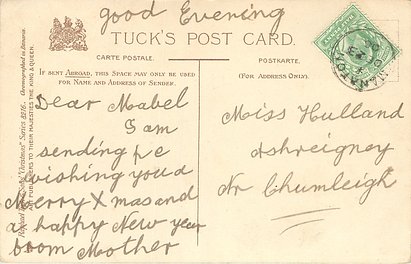 good Evening
TUCK'S POST CARD.
CARTE POSTALE.
POSTKARTE.
IF SENT ABROAD, THIS SPACE MAY ONLY BE USED
FOR NAME AND ADDRESS OF SENDER.
(FOR ADDRESS ONLY).
Dear Mabel
I am
sending
wishing you a
Merry Xmas and
a happy New year
from Mother
Miss Hulland
Ashreigney
Nr Chumleigh
"Christmas" Series 8276.
ART PUBLISHERS TO THEIR MAJESTIES THE KING & QUEEN.